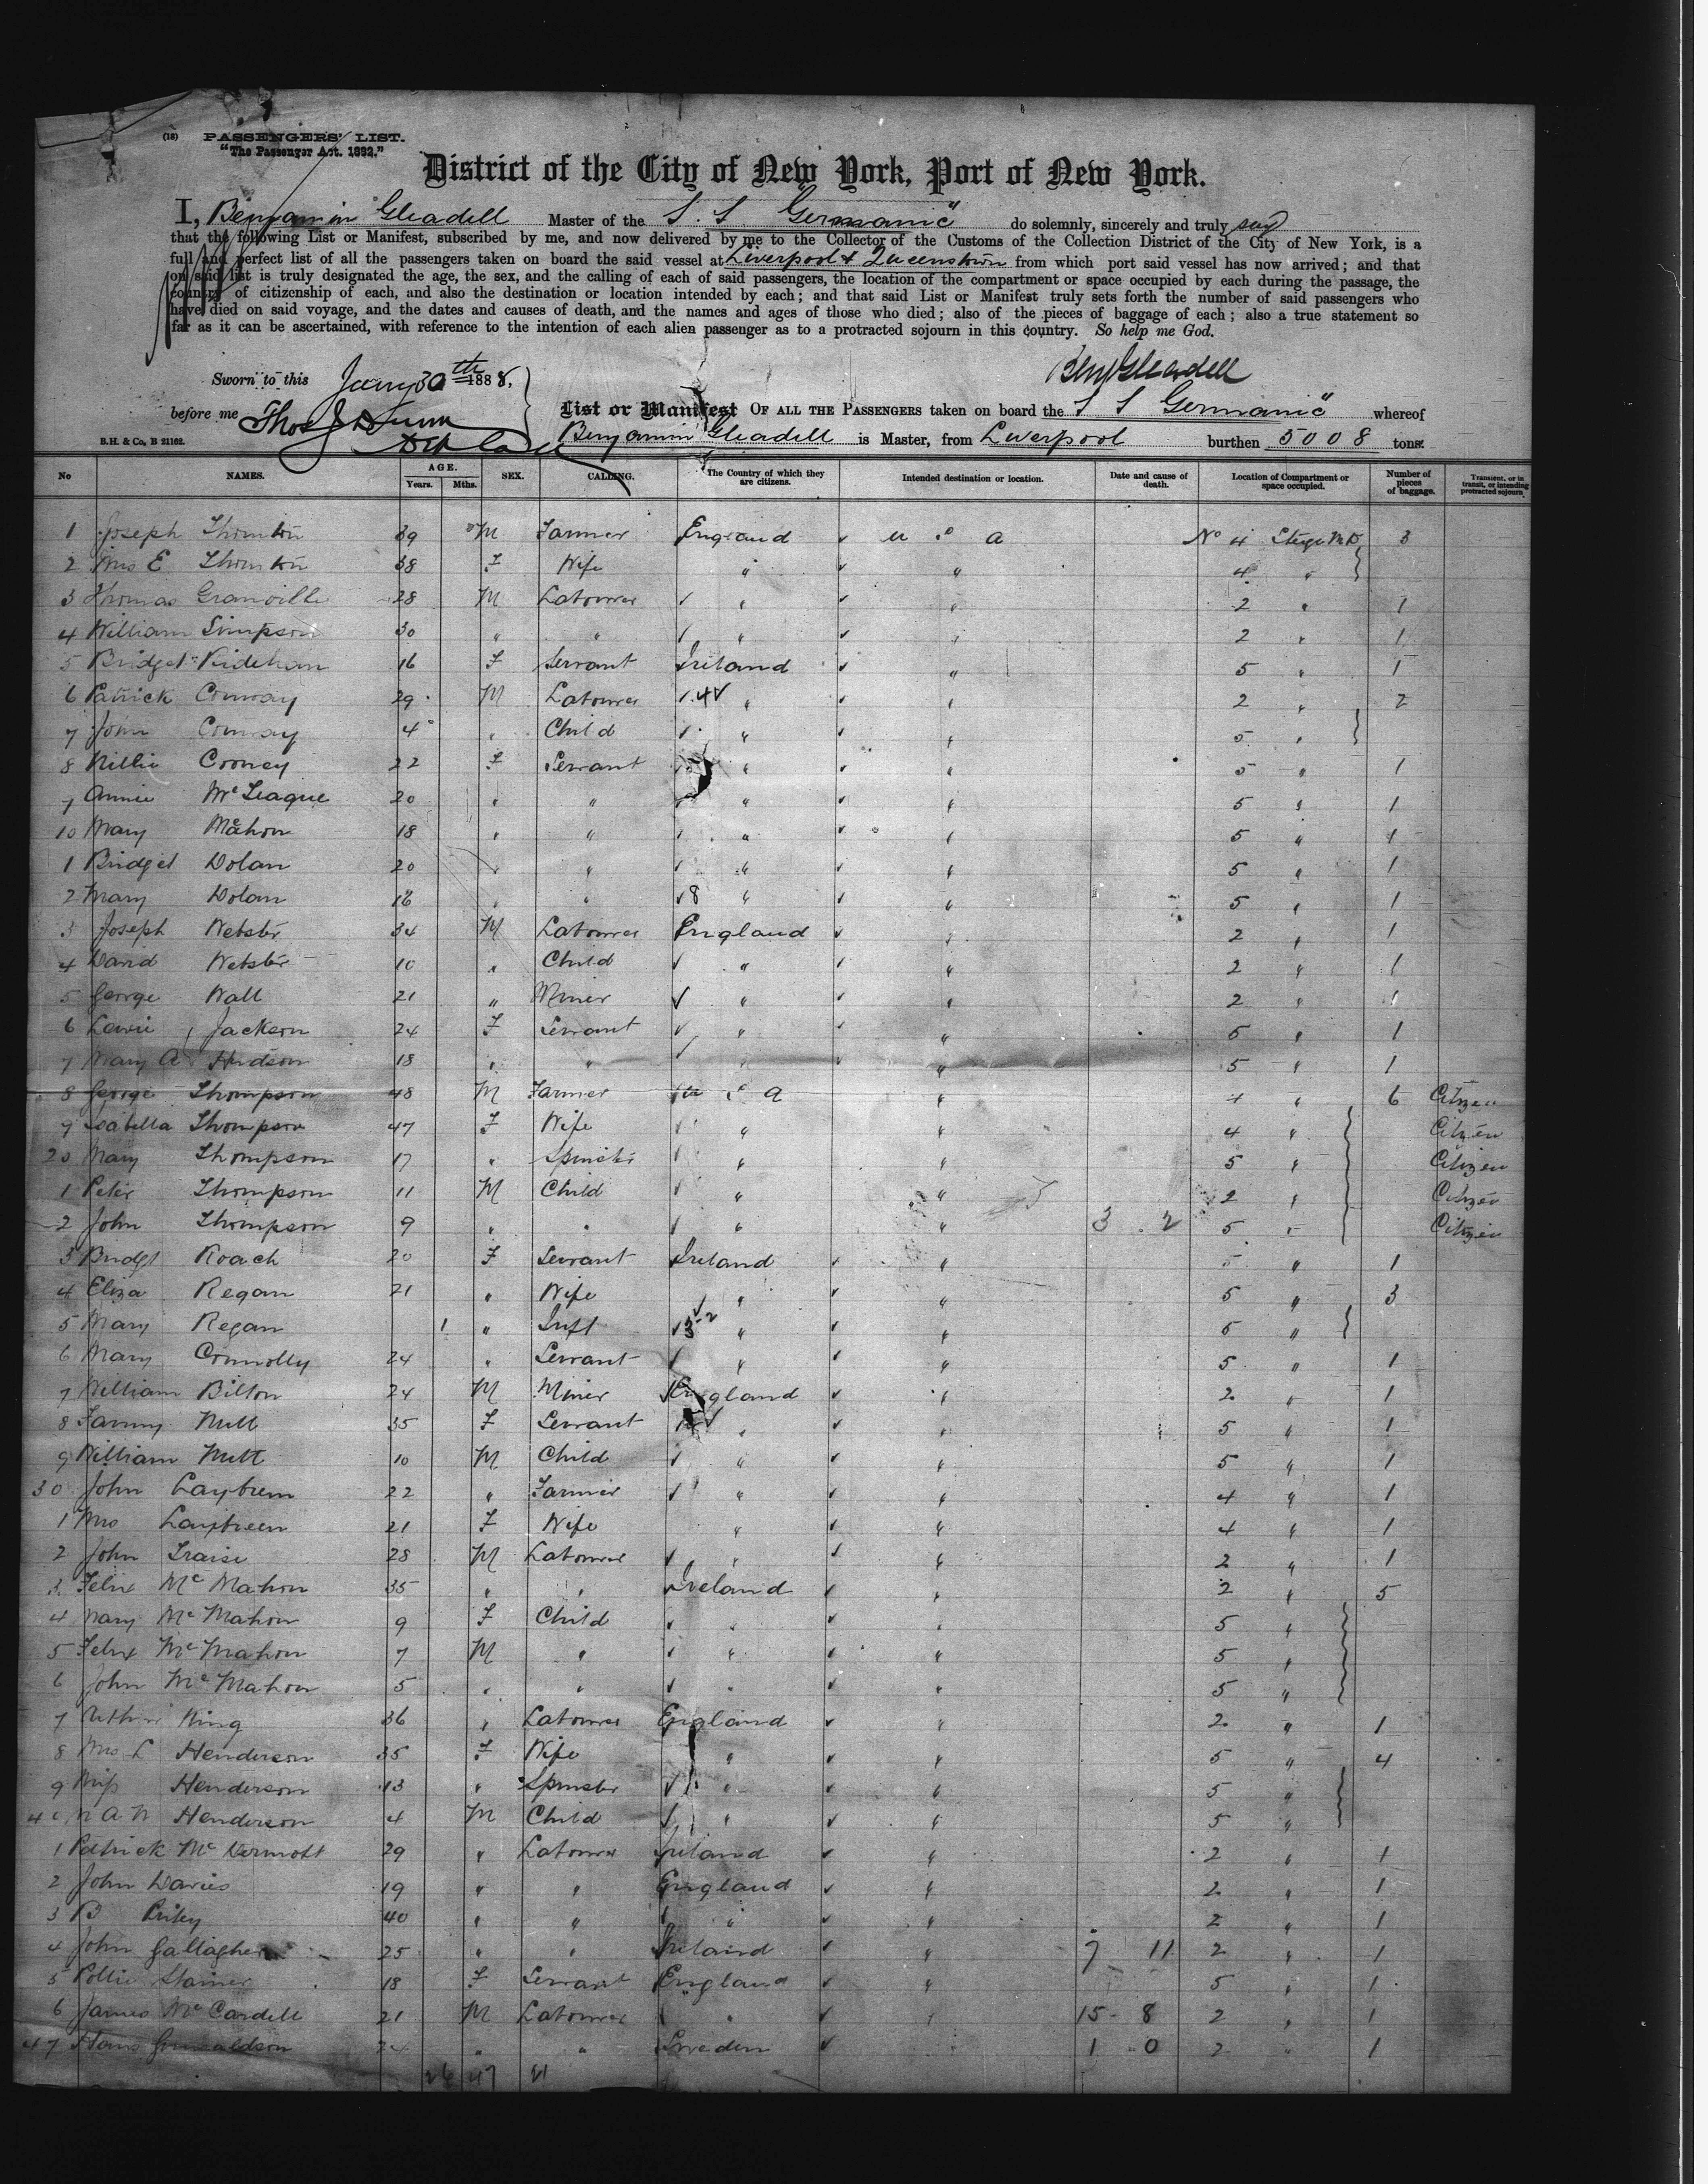 (18) PASSENGERS' LIST.
"The Passenger Act. 1882."
District of the City of New York, Port of New York.
I, Benjamin Gleadell Master of the S. S Germanic" do solemnly, sincerely and truly say
that the following List or Manifest, subscribed by me, and now delivered by me to the Collector of the Customs of the Collection District of the City of New York, is a
full and perfect list of all the passengers taken on board the said vessel at Liverpool & Queenstown from which port said vessel has now arrived; and that
on said list is truly designated the age, the sex, and the calling of each of said passengers, the location of the compartment or space occupied by each during the passage, the
country of citizenship of each, and also the destination or location intended by each; and that said List or Manifest truly sets forth the number of said passengers who
have died on said voyage, and the dates and causes of death, and the names and ages of those who died; also of the pieces of baggage of each; also a true statement so
far as it can be ascertained, with reference to the intention of each alien passenger as to a protracted sojourn in this country. So help me God.
Benj Gleadell
Sworn to this Jany 30th 1888,
before me Thos J Dunn
List or Manifest OF ALL THE PASSENGERS taken on board the S S Germanic" whereof
B.H. & Co., B 21162. Benjamin Gleadell is Master, from Liverpool burthen 5008 tons:
No NAMES. AGE. Years. Mths. SEX. CALLING. The Country of which they are citizens. Intended destination or location. Date and cause of death. Location of Compartment or space occupied. Number of pieces of baggage. Transient, or in transit, or intending protracted sojourn
1 Joseph Thornton 39 M Farmer England U S A No 4 3
2 Mrs E Thornton 38 F Wife " " 4 "
3 Thomas Granville 28 M Labourer " " 2 " 1
4 William Simpson 30 " " " " 2 " 1
5 Bridget 16 F Servant Ireland " 5 " 1
6 Patrick Conway 29 M Labourer " " 2 " 2
7 John Conway 4 " Child " " 5 "
8 Nillie Cooney 22 F Servant " " 5 " 1
9 Annie McTeague 20 " " " " 5 " 1
10 Mary McMahon 18 " " " " 5 " 1
1 Bridget Dolan 20 " " " " 5 " 1
2 Mary Dolan 18 " " 8 " " 5 " 1
3 Joseph Webster 34 M Labourer England " 2 " 1
4 David Webster 10 " Child " " 2 " 1
5 George Wall 21 " Miner " " 2 " 1
6 Jackson 24 F Servant " " 5 " 1
7 Mary A Hudson 18 " " " " 5 " 1
8 George Thompson 48 M Farmer U S A " 4 " 6 Citizen
9 Isabella Thompson 47 F Wife " " 4 " Citizen
20 Mary Thompson 17 " Spinster " " 5 " Citizen
1 Peter Thompson 11 M Child " " 2 " Citizen
2 John Thompson 9 " " " " 3 . 2 5 " Citizen
3 Bridgt Roach 20 F Servant Ireland " 5 " 1
4 Eliza Regan 21 " Wife " " 5 " 3
5 Mary Regan 1 " Inft " " 5 "
6 Mary Connolly 24 " Servant " " 5 " 1
7 William Bilton 24 M Miner England " 2 " 1
8 Fanny Nutt 35 F Servant " " 5 " 1
9 William Nutt 10 M Child " " 5 " 1
30 John 22 " Farmer " " 4 " 1
1 Mrs 21 F Wife " " 4 " 1
2 John Traise 28 M Labourer " " 2 " 1
3 Felix McMahon 35 " " Ireland " 2 " 5
4 Mary McMahon 9 F Child " " 5 "
5 Felix McMahon 7 M " " " 5 "
6 John McMahon 5 " " " " 5 "
7 Arthur King 36 " Labourer England " 2 " 1
8 Mrs L Henderson 35 F Wife " " 5 " 4
9 Miss Henderson 13 " Spinster " " 5 "
40 Henderson 4 M Child " " 5 "
1 Patrick McDermott 29 " Labourer Ireland " 2 " 1
2 John Davies 19 " " England " 2 " 1
3 40 " " " " 2 " 1
4 John Gallagher 25 " " Ireland " 7 11 2 " 1
5 Pollie 18 F Servant England " 5 " 1
6 James McCardell 21 M Labourer " " 15 - 8 2 " 1
47 Hans 24 " " Sweden 1 - 0 2 " 1
26 47 21